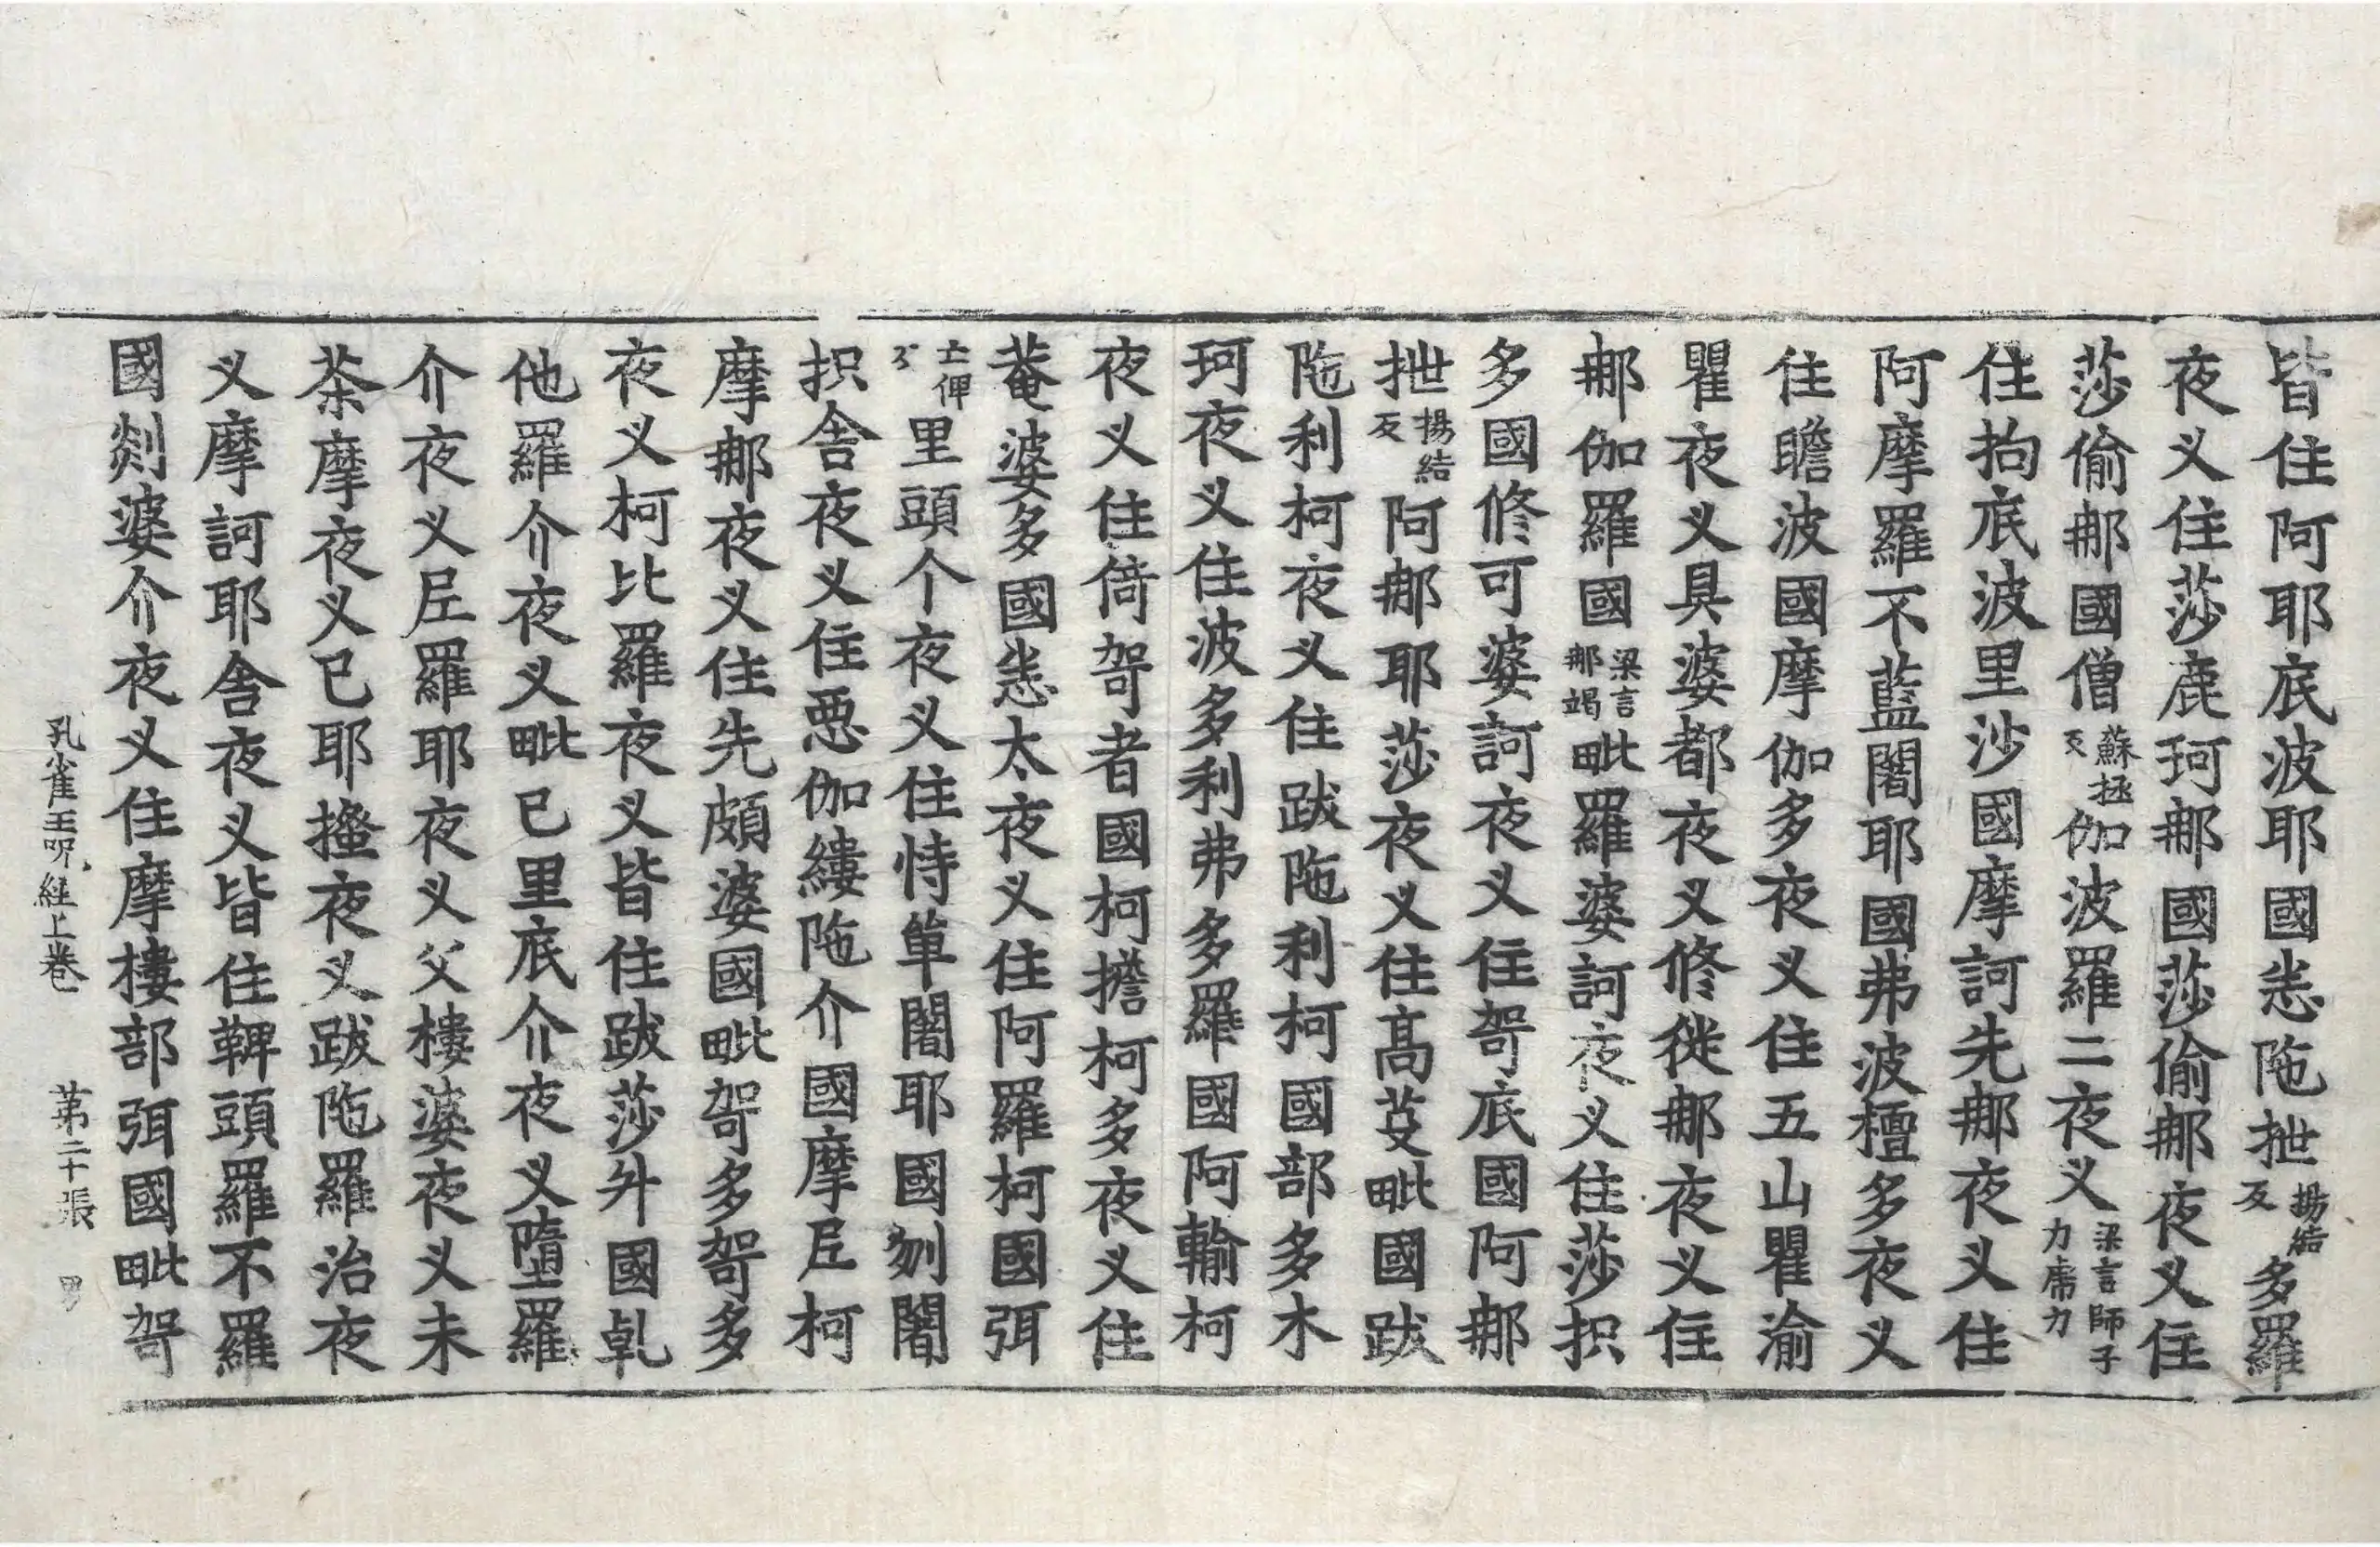 皆住阿耶底波耶國恙陁抴揚結反多羅
夜叉住莎鹿珂那國莎偷那夜叉住
莎偷那國僧蘇拯反伽波羅二夜叉梁言師子力席力
住拘底波里沙國摩訶先那夜叉住
阿摩羅不藍闍耶國弗波檀多夜叉
住瞻波國摩伽多夜叉住五山瞿渝
瞿夜叉具婆都夜叉修徙那夜叉住
那伽羅國梁言那竭毗羅婆訶夜叉住莎抧
多國修可婆訶夜叉住哿底國阿那
抴揚結反阿那耶莎夜叉住高芟毗國跋
陁利柯夜叉住跋陁利柯國部多木
珂夜叉住波多利弗多羅國阿輸柯
夜叉住倚哿者國柯擔柯多夜叉住
菴婆多國恙太夜叉住阿羅柯國弭
里頭个夜叉住恃單闍耶國剜闍
抧舍夜叉住惡伽縷陁介國摩𡰱柯
摩那夜叉住先頗婆國毗哿多哿多
夜叉柯比羅夜叉皆住跋莎外國乹
他羅介夜叉毗已里底介夜叉墮羅
介夜叉𡰱羅耶夜叉父樓婆夜叉未
茶摩夜叉已耶搔夜叉跋陁羅治夜
叉摩訶耶舍夜叉皆住鞞頭羅不羅
國剡婆介夜叉住摩樓部弭國毗哿
孔雀王呪經上卷 第二十張